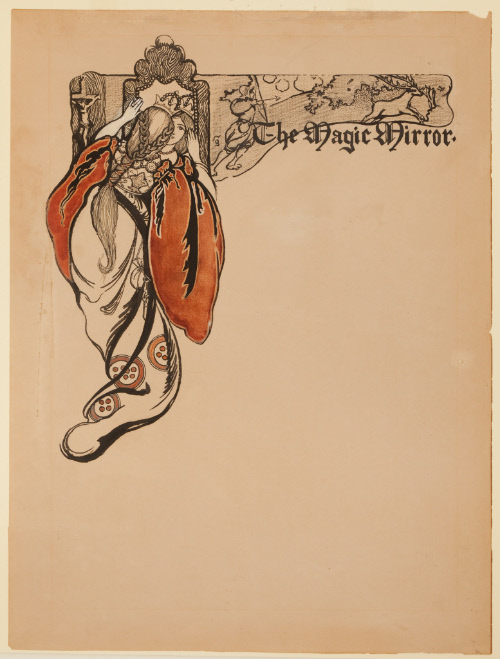 The Magic Mirror.